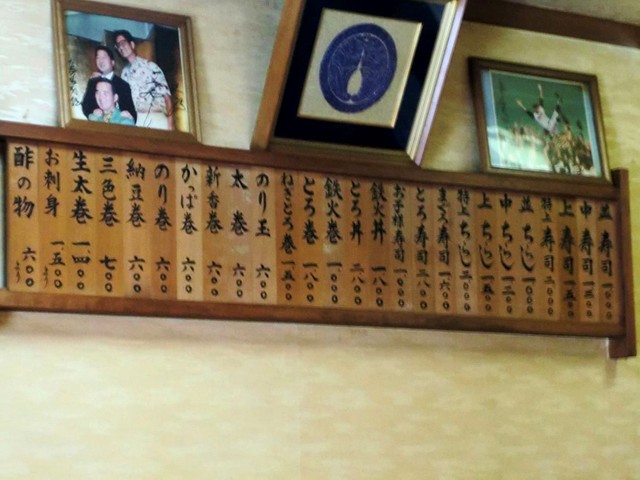 並寿司 一〇〇〇
中寿司 一三〇〇
上寿司 一五〇〇
特上寿司 二〇〇〇
並ちらし 一〇〇〇
中ちらし 一二〇〇
上ちらし 一五〇〇
特上ちらし 二〇〇〇
まぐろ寿司 一六〇〇
とろ寿司 二八〇〇
お子様寿司 一〇〇〇
鉄火丼 一八〇〇
とろ丼 二八〇〇
鉄火巻 一〇〇〇
とろ巻 一八〇〇
ねぎとろ巻 一五〇〇
のり玉 六〇〇
太巻 六〇〇
新香巻 六〇〇
かっぱ巻 六〇〇
のり巻 六〇〇
納豆巻 六〇〇
三色巻 七〇〇
生太巻 一四〇〇
お刺身 一五〇〇より
酢の物 六〇〇より